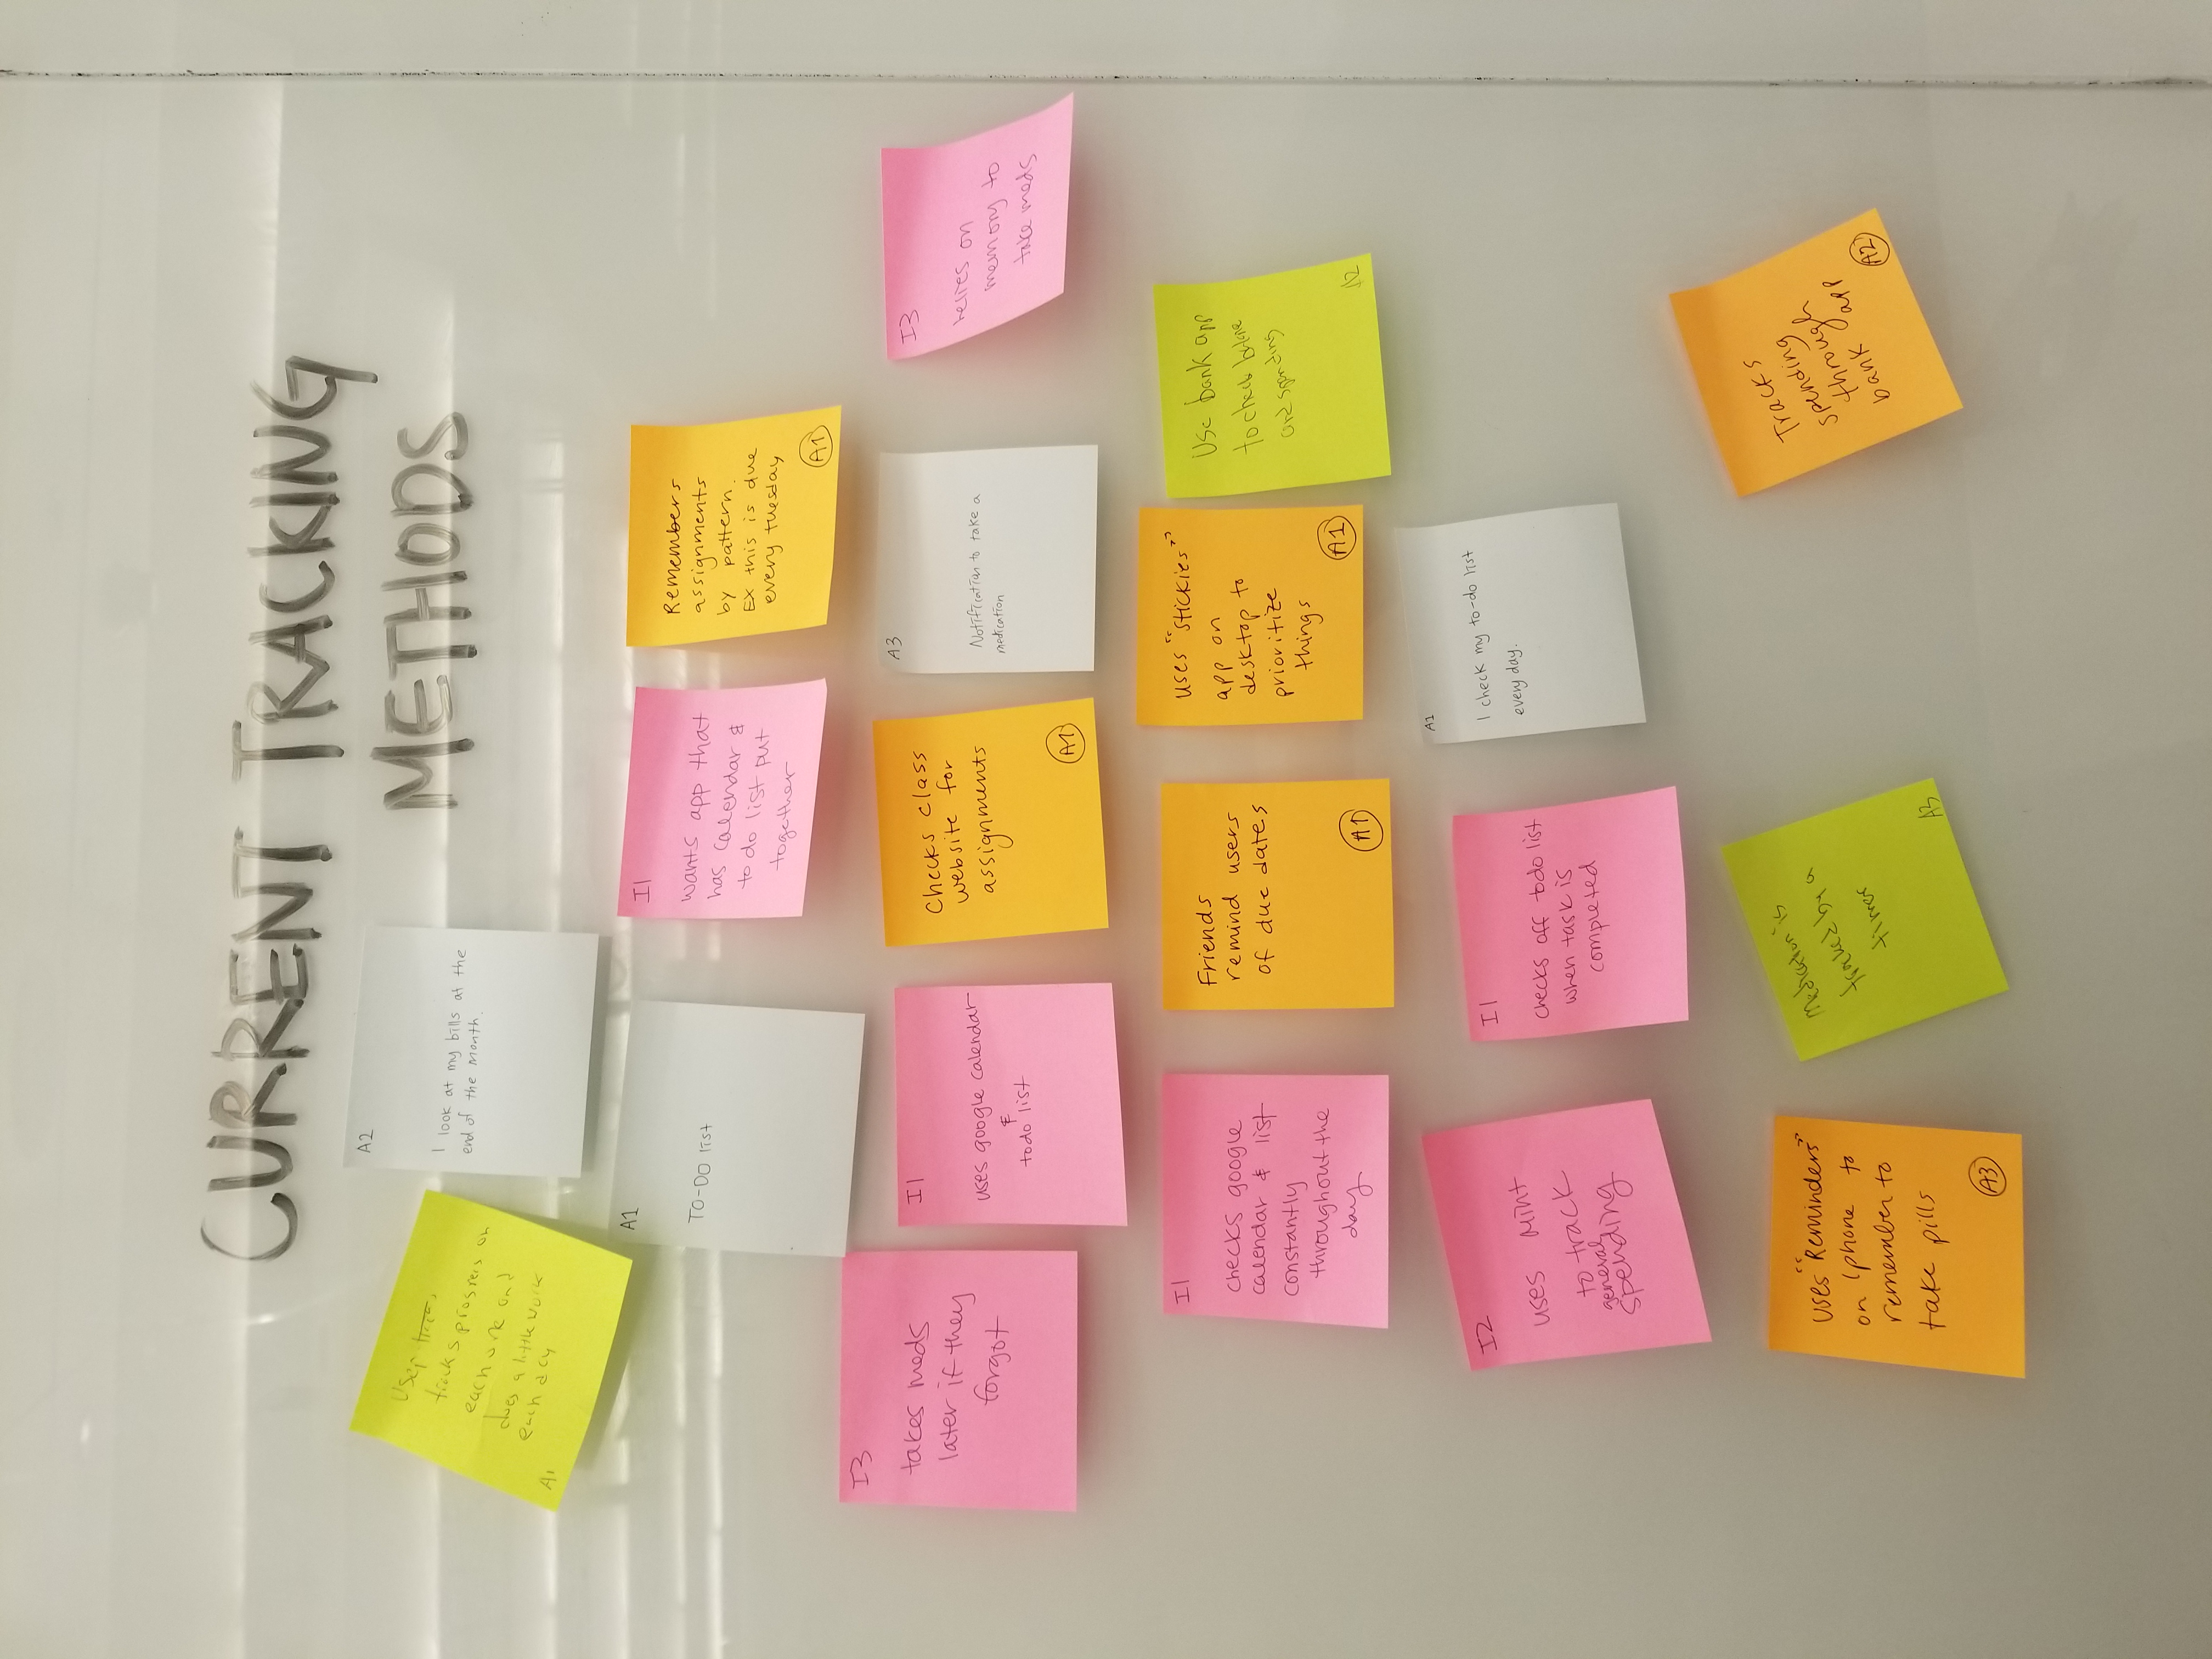 CURRENT TRACKING
METHODS
User
tracks progress on
each one and
does a little work
each day
A1
A2
I look at my bills at the
end of the month.
A1
TO-DO list
I1
wants app that
has calendar &
to do list put
together
Remembers
assignments
by pattern.
EX this is due
every tuesday
A1
I3
takes meds
later if they
forgot
I1
uses google calendar
&
todo list
Checks class
website for
assignments
A1
A3
Notification to take a
medication
I3
relies on
memory to
take meds
I1
checks google
calendar & list
constantly
throughout the
day
Friends
remind users
of due dates
A1
uses "stickies"
app on
desktop to
prioritize
things
A1
Use bank app
to check balane
and spending
A2
I2
uses mint
to track
general
spending
I1
checks off todo list
when task is
completed
A1
I check my to-do list
every day.
uses "Reminders"
on Iphone to
remember to
take pills
A3
Medication is
tracked by a
timer
A3
Tracks
spending
through
bank app
A2